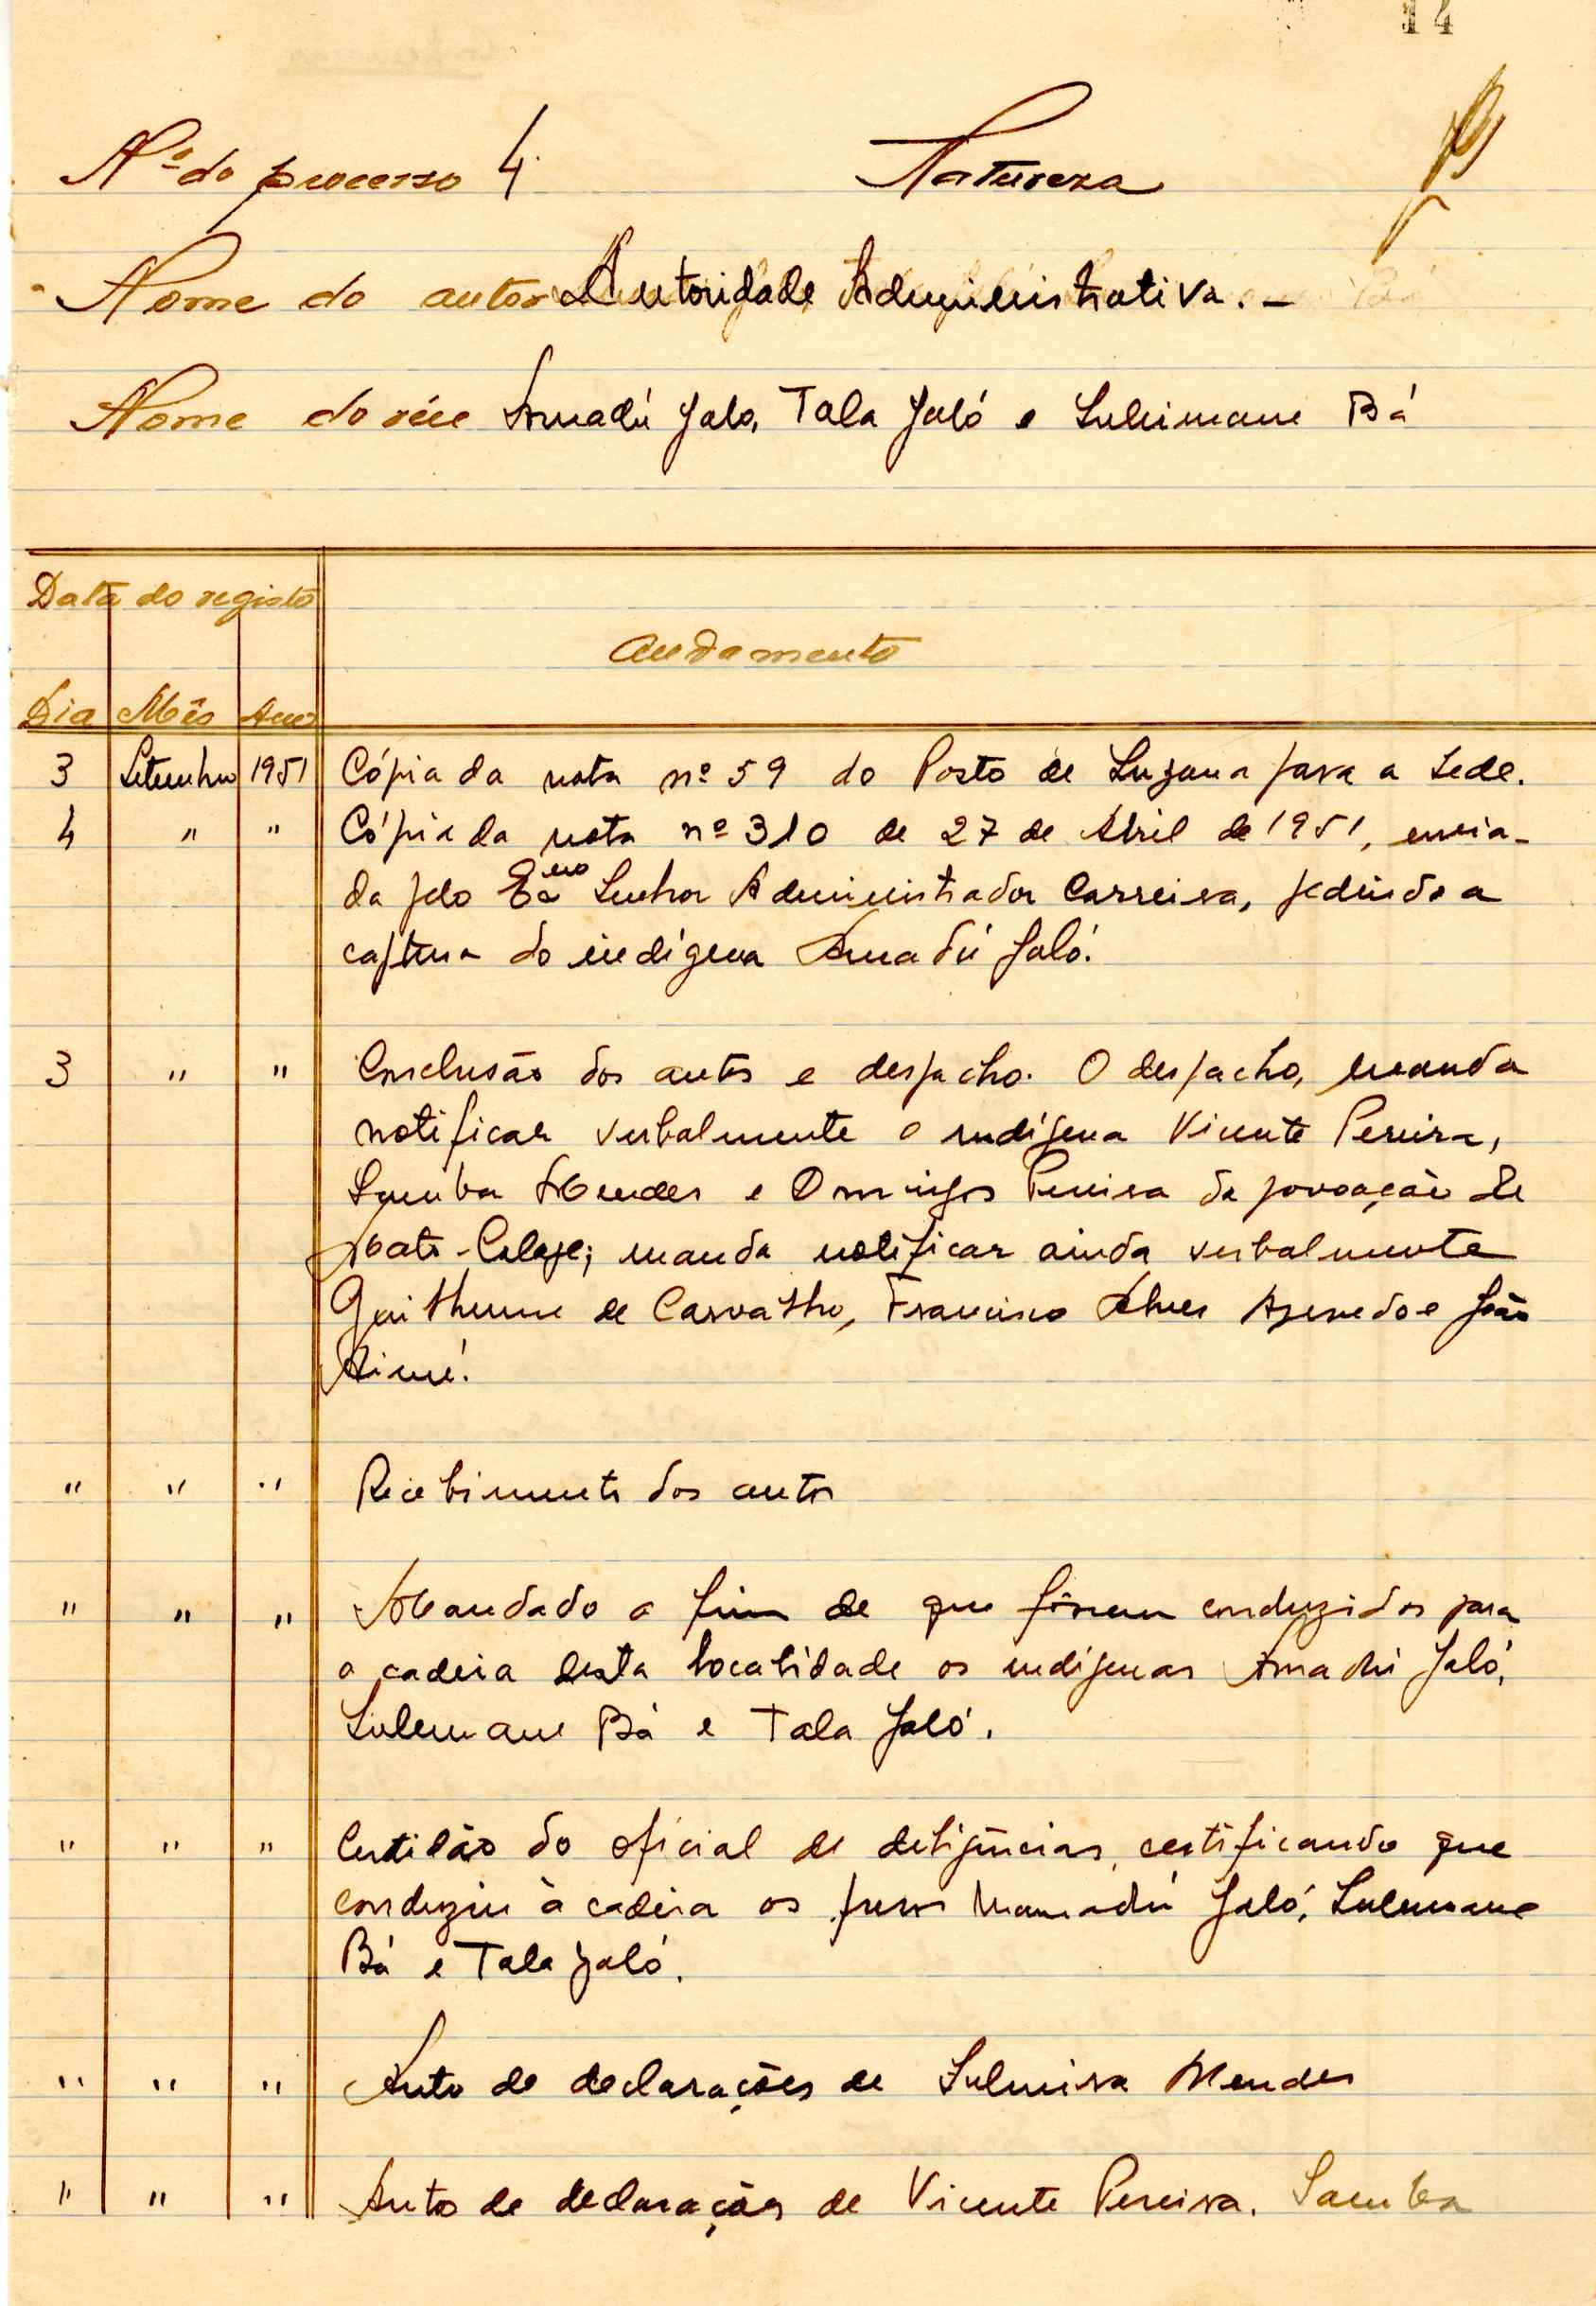 14
Nº do processo 4. Natureza
Nome do autor Autoridade Administrativa. -
Nome do réu Amadú Jalo, Tala Jaló e Suleimane Bá
Data do registo
Andamento
Dia Mês Ano
3 Setembro 1951 Cópia da nota nº 59 do Posto de Suzana para a Sede.
4 " " Cópia da nota nº 310 de 27 de Abril de 1951, envia-
da pelo Exmo Senhor Administrador Carreira, pedindo a
captura do indígena Amadú Jaló.
3 " " Conclusão dos autos e despacho. O despacho, manda
notificar verbalmente o indígena Vicente Pereira,
Samba Mendes e Domingos Pereira da povoação de
manda notificar ainda verbalmente
Guilherme de Carvalho, Francisco Alves Azevedo e João
Aimé.
" " " Recebimento dos autos
" " " Mandado a fim de que fôssem conduzidos para
a cadeia desta localidade os indígenas Amadú Jaló,
Sulemane Bá e Tala Jaló.
" " " Certidão do oficial de deligências, certificando que
conduziu à cadeia os presos Mamadú Jaló, Sulemane
Bá e Tala Jaló.
" " " Auto de declarações de Mendes
" " " Auto de declarações de Vicente Pereira. Samba